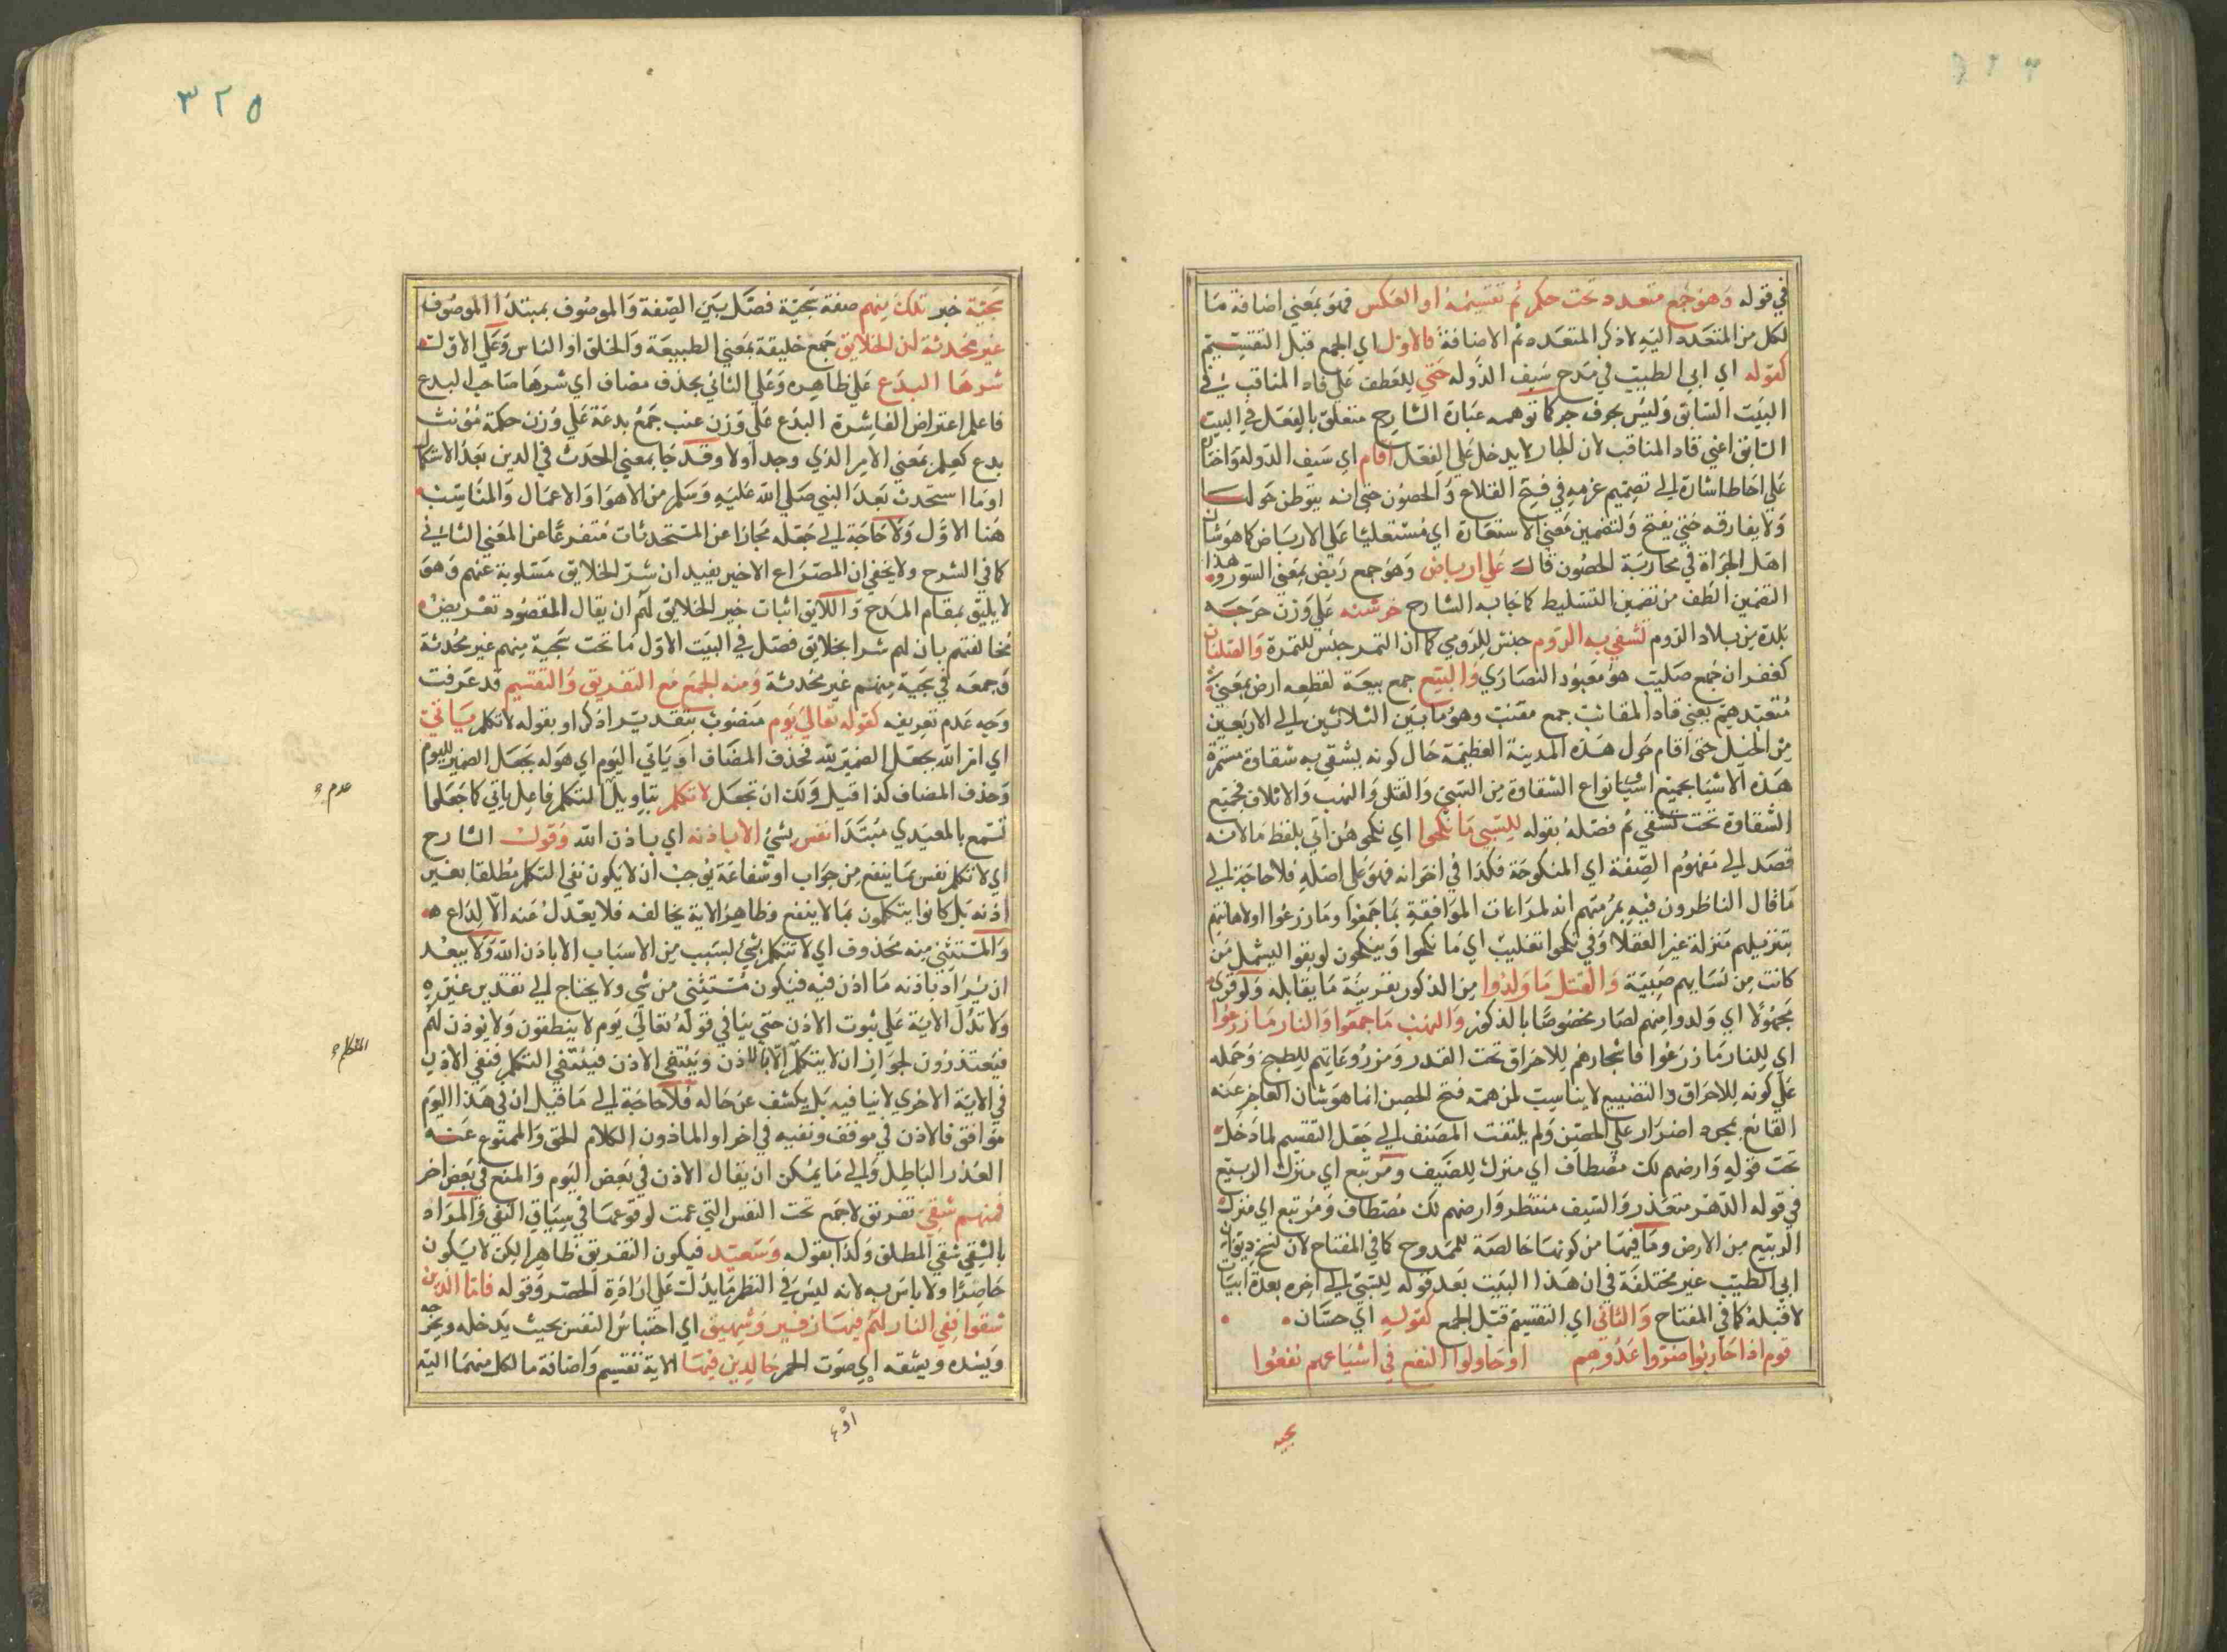 في قوله وهو جمع متعدد تحت حكم ثم تقسيمه او العكس فهو بمعني اضافة ما
لكل من المتعدد اليه لا ذكر المتعدد ثم الاضافة فالاول اي الجمع قبل التقسيم
كقوله اي ابي الطيب في مدح سيف الدوله حتي للعطف علي قاد المناقب في
البيت السابق وليس بحرف جر كما توهمه عبارة الشارح متعلق بالفعل في البيت
السابق اعني قاد المناقب لان الجار لا يدخل علي الفعل اقام اي سيف الدولة واختار
علي احاط اشارة الي تصميم عزمه في فتح القلاع والحصون حتي انه يتوطن حولها
ولا يفارقه حتي يفتح ولتضمين معني الاستعارة اي مستعليا علي الارباض كما هو شان
اهل الجراة في محاربة الحصون قال علي ارباض وهو جمع ربض بمعني السور وهذا
التضمين الطف من تضمين التسليط كما جا به الشارح خرشنه علي وزن حرجه
بلدة من بلاد الروم تشقي به الروم جنس للرومي كما ان التمر جنس للتمرة والصلبان
كغفران جمع صليب هو معبود النصاري والبيع جمع بيعة لقطعه ارض بمعني
متعبدهم يعني قاد المقانب جمع مقنب وهو ما بين الثلاثين الي الاربعين
من الخيل حتي اقام حول هذه المدينة العظيمة حال كونه يشقي به شقاوة مستمرة
هذه الاشيا بجميع اشيا وانواع الشقاوة من السبي والقتل والنهب والاتلاف فجمع
الشقاوة تحت تشقي ثم فصله بقوله للسبي ما نكحوا اي نكحوهن اتي بلفظ ما لانه
قصد الي مفهوم الصفة اي المنكوحة فكذا في اخوانه فهو علي اصله فلا حاجة الي
ما قال الناظرون فيه برمتهم انه لمراعات الموافقة بما جمعوا وما زرعوا او لاهانتهم
بتنزيلهم منزلة غير العقلا وفي نكحوا تغليب اي ما نكحوا وينكحون لو بقوا ليشمل من
كانت من نسايهم صبية والقتل ما ولدوا من الذكور بقرينة ما يقابله ولو قري
مجهولا اي ولدوا منهم لصار مخصوصا بالذكور والنهب ما جمعوا والنار ما زرعوا
اي للنار ما زرعوا فاشجارهم للاحراق تحت القدر ومزروعاتهم للطبخ وحمله
علي كونه للاحراق والتضييع لا يناسب لمن همته فتح الحصن انما هو شان العاجز عنه
القانع بمجرد اضرار علي الحصن ولم يلتفت المصنف الي جعل التقسيم لما دخل
تحت قوله وارضهم لك مصطاف اي منزل للصيف ومرتبع اي منزل الربيع
في قوله الدهر معتذر والسيف منتظر وارضهم لك مصطاف ومرتبع اي منزل
الربيع من الارض وما فيها من كونها خالصة للممدوح كما في المفتاح لان نسخ ديوان
ابي الطيب غير مختلفة في ان هذا البيت بعد قوله للسبي الي اخره بعدة ابيات
لا قبله كما في المفتاح والثاني اي التقسيم قبل الجمع كقوله اي حسان
قوم اذا حاربوا ضروا عدوهم او حاولوا النفع في اشياعهم نفعوا
سجيه
٣٢٥
سجية خبر تلك منهم صفة سجية فصل بين الصفة والموصوف بمبتدا الموصوف
غير محدثة ان الخلايق جمع خليقة بمعني الطبيعة والخلق او الناس وعلي الاول
شرها البدع علي ظاهره وعلي الثاني بحذف مضاف اي شرها صاحب البدع
فاعلم اعتراض الفا شره البدع علي وزن عنب جمع بدعة علي وزن حكمة مؤنث
بدع كعلم بمعني الامر الذي وجد اولا وقد جا بمعني الحدث في الدين بعد الاكمال
او ما استحدث بعد النبي صلي الله عليه وسلم من الاهوا والاعمال والمناسب
هنا الاول ولا حاجة الي جعله مجازا عن المستحدثات متفرعا عن المعني الثاني
كما في الشرح ولا يخفي ان المصراع الاخير يفيد ان شر الخلايق مسلوبة عنهم وهو
لا يليق بمقام المدح واللايق اثبات خير الخلايق لهم ان يقال المقصود تعريض
مخالفتهم بان لهم شرا بخلايق فصل في البيت الاول ما تحت سجية منهم غير محدثة
وجمعه في سجية منهم غير محدثة ومنه الجمع مع التفريق والتقسيم قد عرفت
وجه عدم تعريفه كقوله تعالي يوم منصوب بتقدير اذكر او بقوله لا تكلم ياتي
اي امر الله بجعل الضمير لله فحذف المضاف او ياتي اليوم اي هوله بجعل الضمير لليوم
وحذف المضاف كذا قيل ولك ان تجعل لا تكلم بتاويل التكلم فاعل ياتي كما جعلوا
تسمع بالمعيدي مبتدا نفس بشيء الا باذنه اي باذن الله وقول الشارح
اي لا تكلم نفس بما ينفع من جواب او شفاعة يوجب ان لا يكون نفي التكلم مطلقا بغير
اذنه بل كانوا يتكلمون بما لا ينفع وظاهر الاية يخالفه فلا يعدل عنه الا لداع
والمستثني منه محذوف اي لا تتكلم بشيء لسبب من الاسباب الا باذن الله ولا يبعد
ان يراد باذنه ما اذن فيه فيكون مستثني من شي ولا يحتاج الي تقدير غيره
ولا تدل الاية علي ثبوت الاذن حتي ينافي قوله تعالي يوم لا ينطقون ولا يؤذن لهم
فيعتذرون لجواز ان لا يتكلم الا بالاذن وينتفي الاذن فينتفي التكلم فنفي الاذن
في الاية الاخري لا ينافيه بل يكشف عن حاله فلا حاجة الي ما قيل ان في هذا اليوم
مواقف فالاذن في موقف ونفيه في اخر او الماذون الكلام الحق والممنوع عنه
العذر الباطل والي ما يمكن ان يقال الاذن في بعض اليوم والمنع في بعض اخر
فمنهم شقي تفريق لا جمع تحت النفس التي عمت لوقوعها في سياق النفي والمراد
بالشقي شقي المطلق وكذا بقوله وسعيد فيكون التفريق ظاهرا لكن لا يكون
حاصرا ولا باس به لانه ليس في النظم ما يدل علي ارادة الحصر وقوله فاما الذين
شقوا ففي النار لهم فيها زفير وشهيق اي احتباس النفس بحيث يدخله ويخرجه
ويشده ويشقه اي صوت الحمر خالدين فيها الاية تقسيم واضافة ما لكل منهما اليه
عدم
التكلم